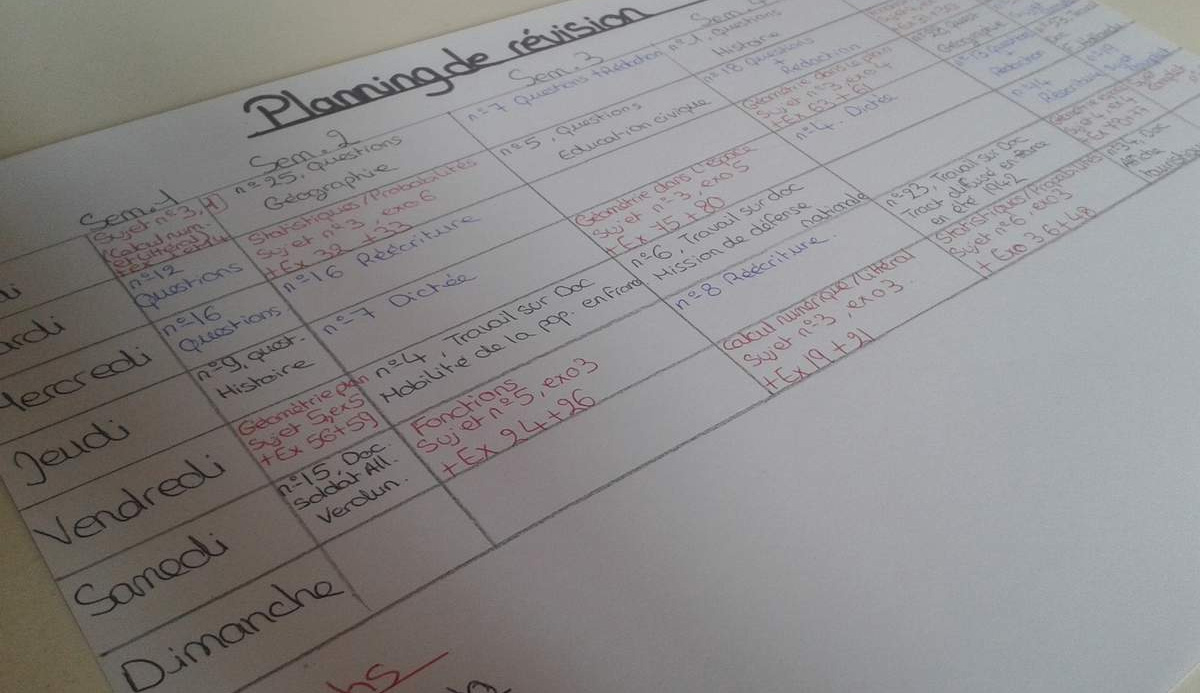 Planning de révision
Sem. 1
Sem. 2
Sem. 3
Sem. 4
Mercredi
Jeudi
Vendredi
Samedi
Dimanche
Sujet n°3, 4
(Calcul num.
n°12
Questions
n°16
Questions
n°9, quest.
Histoire
Géométrie plan
Sujet 5, ex 5
+ Ex 56+59
n°15, Doc.
Soldat All.
Verdun.
n°25, Questions
Géographie
Statistiques/Probabilités
Sujet n°3, exo 6
+ Ex 32 + 33
n°16 Réécriture
n°7 Dictée
n°4, Travail sur Doc
Mobilité de la pop. en France
Fonctions
Sujet n°5, exo 3
+ Ex 24 + 26
n°7 Questions + Rédaction
n°5, Questions
Education civique
Géométrie dans l'espace
Sujet n°3, exo 5
+ Ex 75 + 80
n°6, Travail sur doc
Mission de défense
nationale
n°8 Réécriture.
Calcul numérique/Littéral
Sujet n°3, exo 3.
+ Ex 19 + 21
n°1, Questions
Histoire
n°18 Questions
+ Rédaction
Géométrie dans le plan
Sujet n°3, exo 4
+ Ex 63 - 61
n°4. Dictée
n°23, Travail sur Doc
Tract diffusé en France
en été 1942
Statistiques/Probabilités
Sujet n°6, exo 3
+ Exo 36 + 48
Géographie
Réécriture